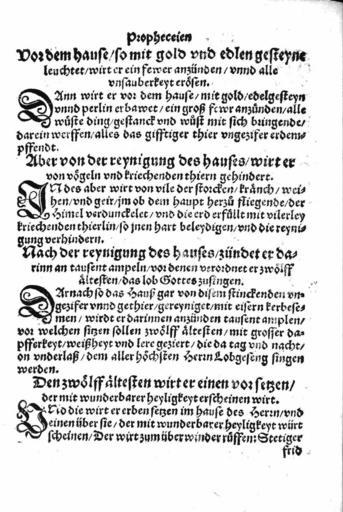 Propheceien
Vor dem hause/so mit gold vnd edlen gesteyne
leuchtet/wirt er ein fewer anzünden/vnnd alle
vnsauberkeyt erösen.
Dann wirt er vor dem hause/mit gold/edelgesteyn
vnnd perlin erbawet/ein groß fewr anzünden/alle
wüste ding/gestanck vnd wüst mit sich bringende/
darein werffen/alles das gifftiger thier vngezifer erdem-
pffendt.
Aber von der reynigung des hauses/wirt er
von vögeln vnd kriechenden thiern gehindert.
In des aber wirt von vile der storcken/kränch/wei-
hen/vnd geir/jm ob dem haupt herzů fliegende/der
Himel verdunckelet/vnd die erd erfüllt mit vilerley
kriechenden thierlin/so jnen hart beleydigen/vnd die reyni-
gung verhindern.
Nach der reynigung des hauses/zündet er da-
rinn an tausent ampeln/vor denen verordnet er zwölff
ältesten/das lob Gottes zusingen.
Darnach so das Hauß gar von disem stinckenden vn-
gezifer vnnd gethier/gereyniget/mit eisern kerbese-
men/wirdt er darinnen anzünden tausent amplen/
vor welchen sitzen sollen zwölff ältesten/mit grosser da-
pfferkeyt/weißheyt vnd lere geziert/die da tag vnd nacht/
on vnderlaß/dem aller höchsten Herrn Lobgeseng singen
werden.
Den zwölff ältesten wirt er einen vorsetzen/
der mit wunderbarer heyligkeyt erscheinen wirt.
Vnd die wirt er erben setzen im hause des Herrn/vnd
einen über sie/der mit wunderbarer heyligkeyt würt
scheinen/Der wirt zum überwinder rüffen: Stetiger
frid